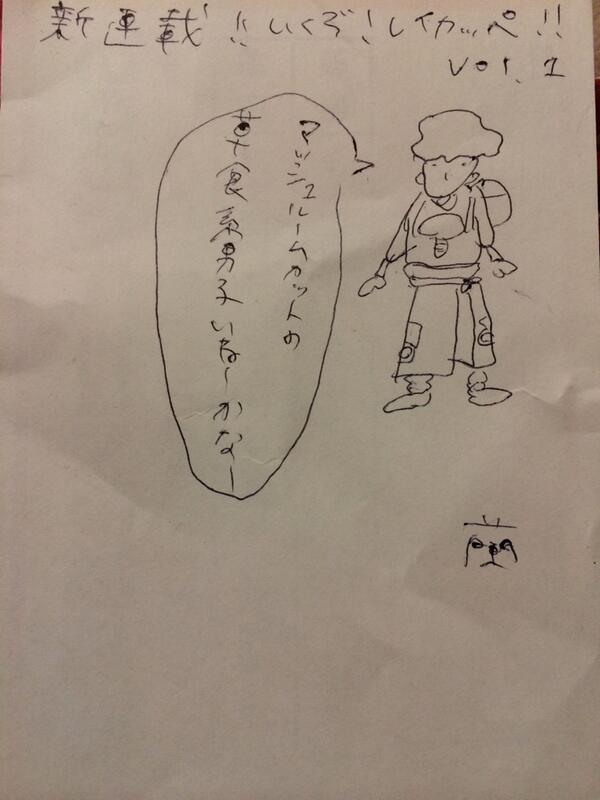 新連載!!いくぞ!レイカッペ!!
vol.1
マッシュルームカットの
草食系男子いねーかなー